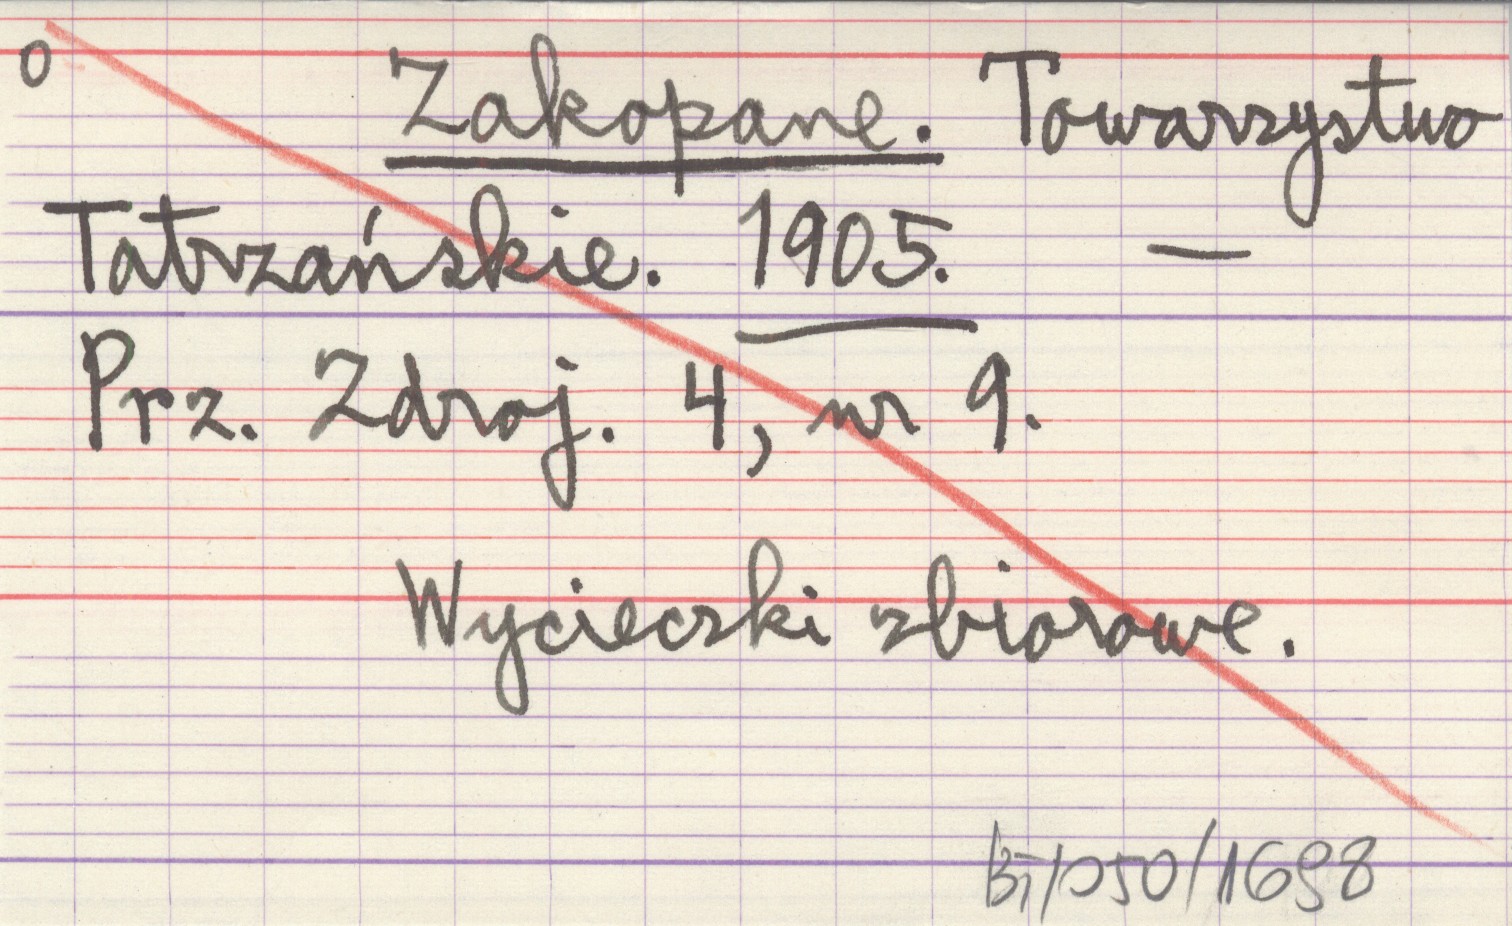 o Zakopane. Towarzystwo
Tatrzańskie. 1905. —
Prz. Zdroj. 4, nr 9.
Wycieczki zbiorowe.